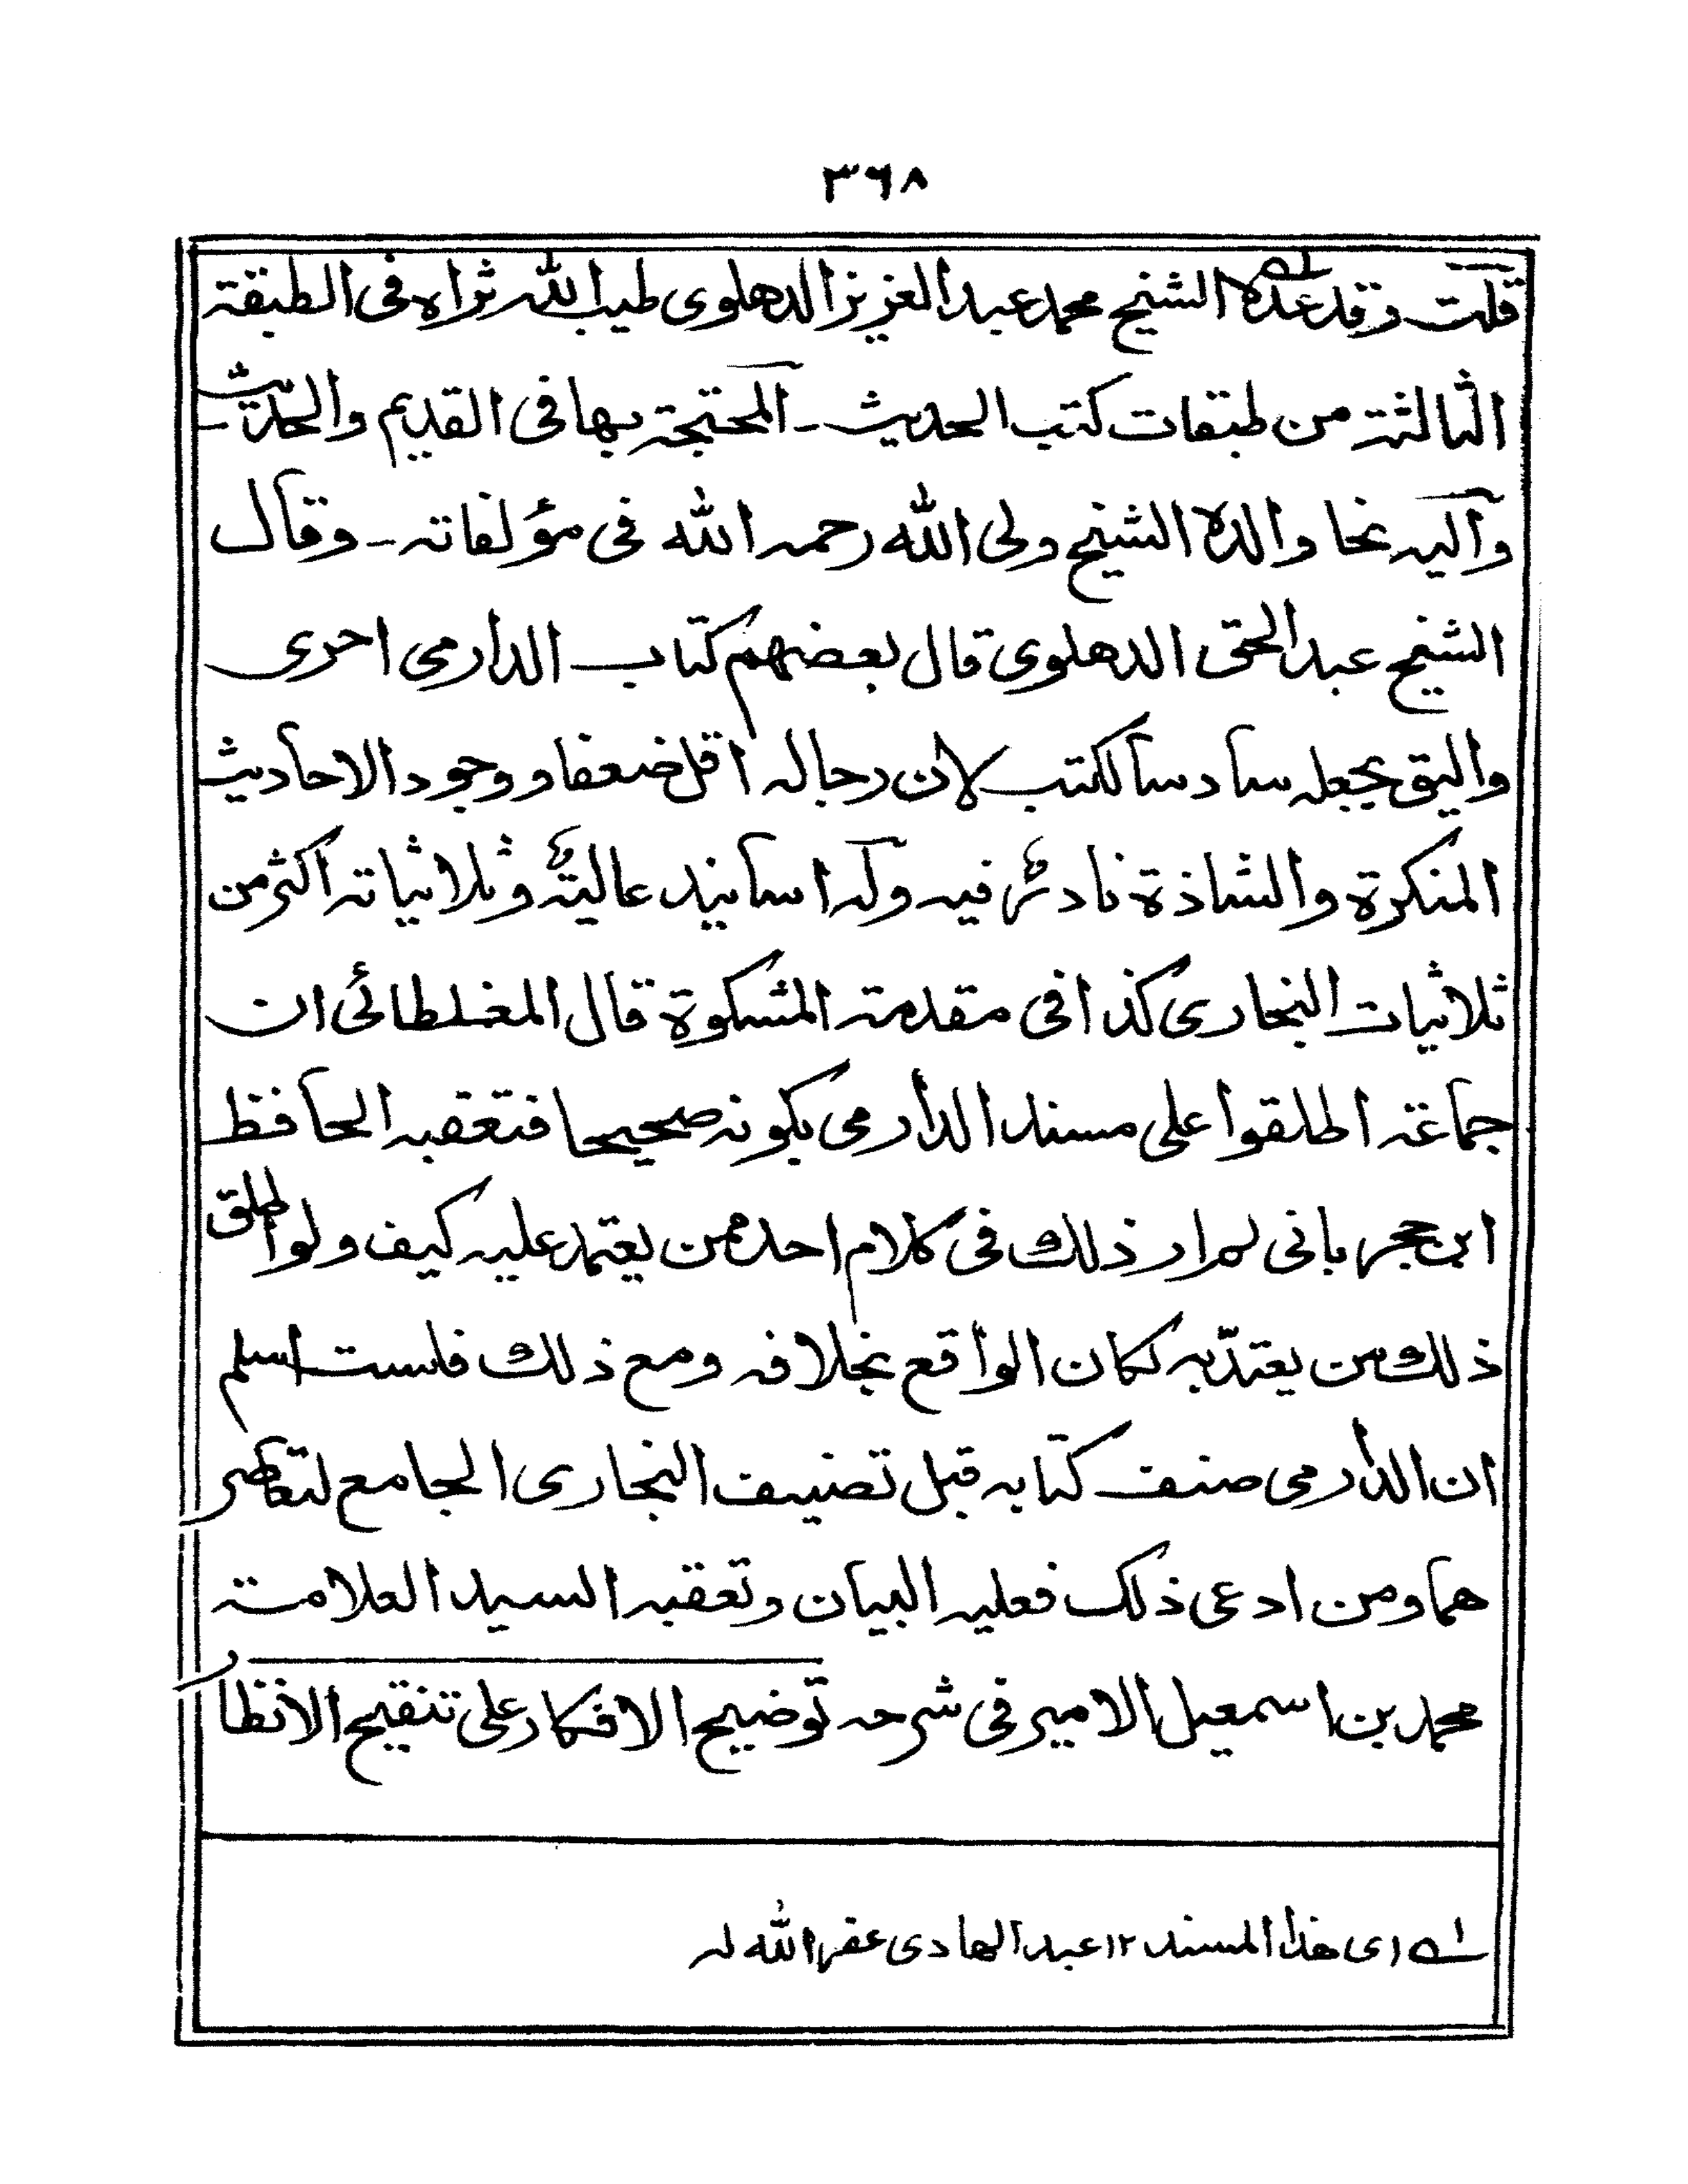 ٣٦٨
قلت وقد عده الشيخ محمد عبد العزيز الدهلوى طيب الله ثراه فى الطبقة
الثالثة من طبقات كتب الحديث ـ المحتجة بها فى القديم والحديث ـ
واليه نحا والده الشيخ ولى الله رحمه الله فى مؤلفاته ـ وقال
الشيخ عبد الحق الدهلوى قال بعضهم كتاب الدارمى احرى
واليق بجعله سادسا لكتب لان رجاله اقل ضعفا ووجود الاحاديث
المنكرة والشاذة نادرة فيه وله اسانيد عالية وثلاثياته اكثر من
ثلاثيات البخارى كذا فى مقدمة المشكوة قال المغلطائى ان
جماعة اطلقوا على مسند الدارمى بكونه صحيحا فتعقبه الحافظ
ابن حجر بانى لم ار ذلك فى كلام احد ممن يعتمد عليه كيف ولو اطلق
ذلك من يعتد به لكان الواقع بخلافه ومع ذلك فلست اسلم
ان الدارمى صنف كتابه قبل تصنيف البخارى الجامع لتعاصر
هما ومن ادعى ذلك فعليه البيان وتعقبه السيد العلامة
محمد بن اسمعيل الامير فى شرحه توضيح الافكار على تنقيح الانظار
له اى هذا المسند ١٢ عبد الهادى غفر الله له